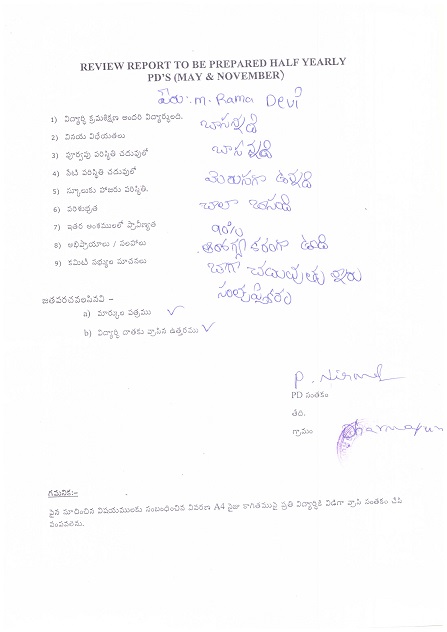 REVIEW REPORT TO BE PREPARED HALF YEARLY
PD'S (MAY & NOVEMBER)
పేరు:- M. Rama Devi
1) విద్యార్ధి క్రమశిక్షణ అందరి విద్యార్ధులది. బాగున్నది
2) వినయ విధేయతలు బాగున్నది
3) పూర్వపు పరిస్థితి చదువులో మెరుగుగా ఉన్నది
4) నేటి పరిస్థితి చదువులో చాలా బాగుంది
5) స్కూలుకు హాజరు పరిస్థితి. 90%
6) పరిశుభ్రత ఉంది
7) ఇతర అంశములలో ప్రావీణ్యత బాగా చదువుతు
8) అభిప్రాయాలు / సలహాలు
9) కమిటి సభ్యుల సూచనలు
జతపరచవలసినవి –
a) మార్కుల పత్రము ✓
b) విద్యార్ధి దాతకు వ్రాసిన ఉత్తరము ✓
P. Nirmal
PD సంతకం
తేది.
గ్రామం
గమనిక:-
పైన సూచించిన విషయములకు సంబంధించిన వివరణ A4 సైజు కాగితముపై ప్రతి విద్యార్ధికి విడిగా వ్రాసి సంతకం చేసి
పంపవలెను.